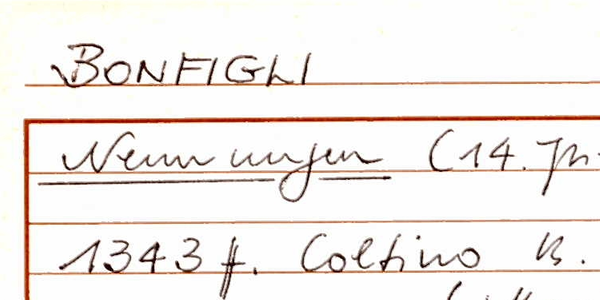 BONFIGLI
Nennungen (14. Jh.
1343 ff. Coltino B.